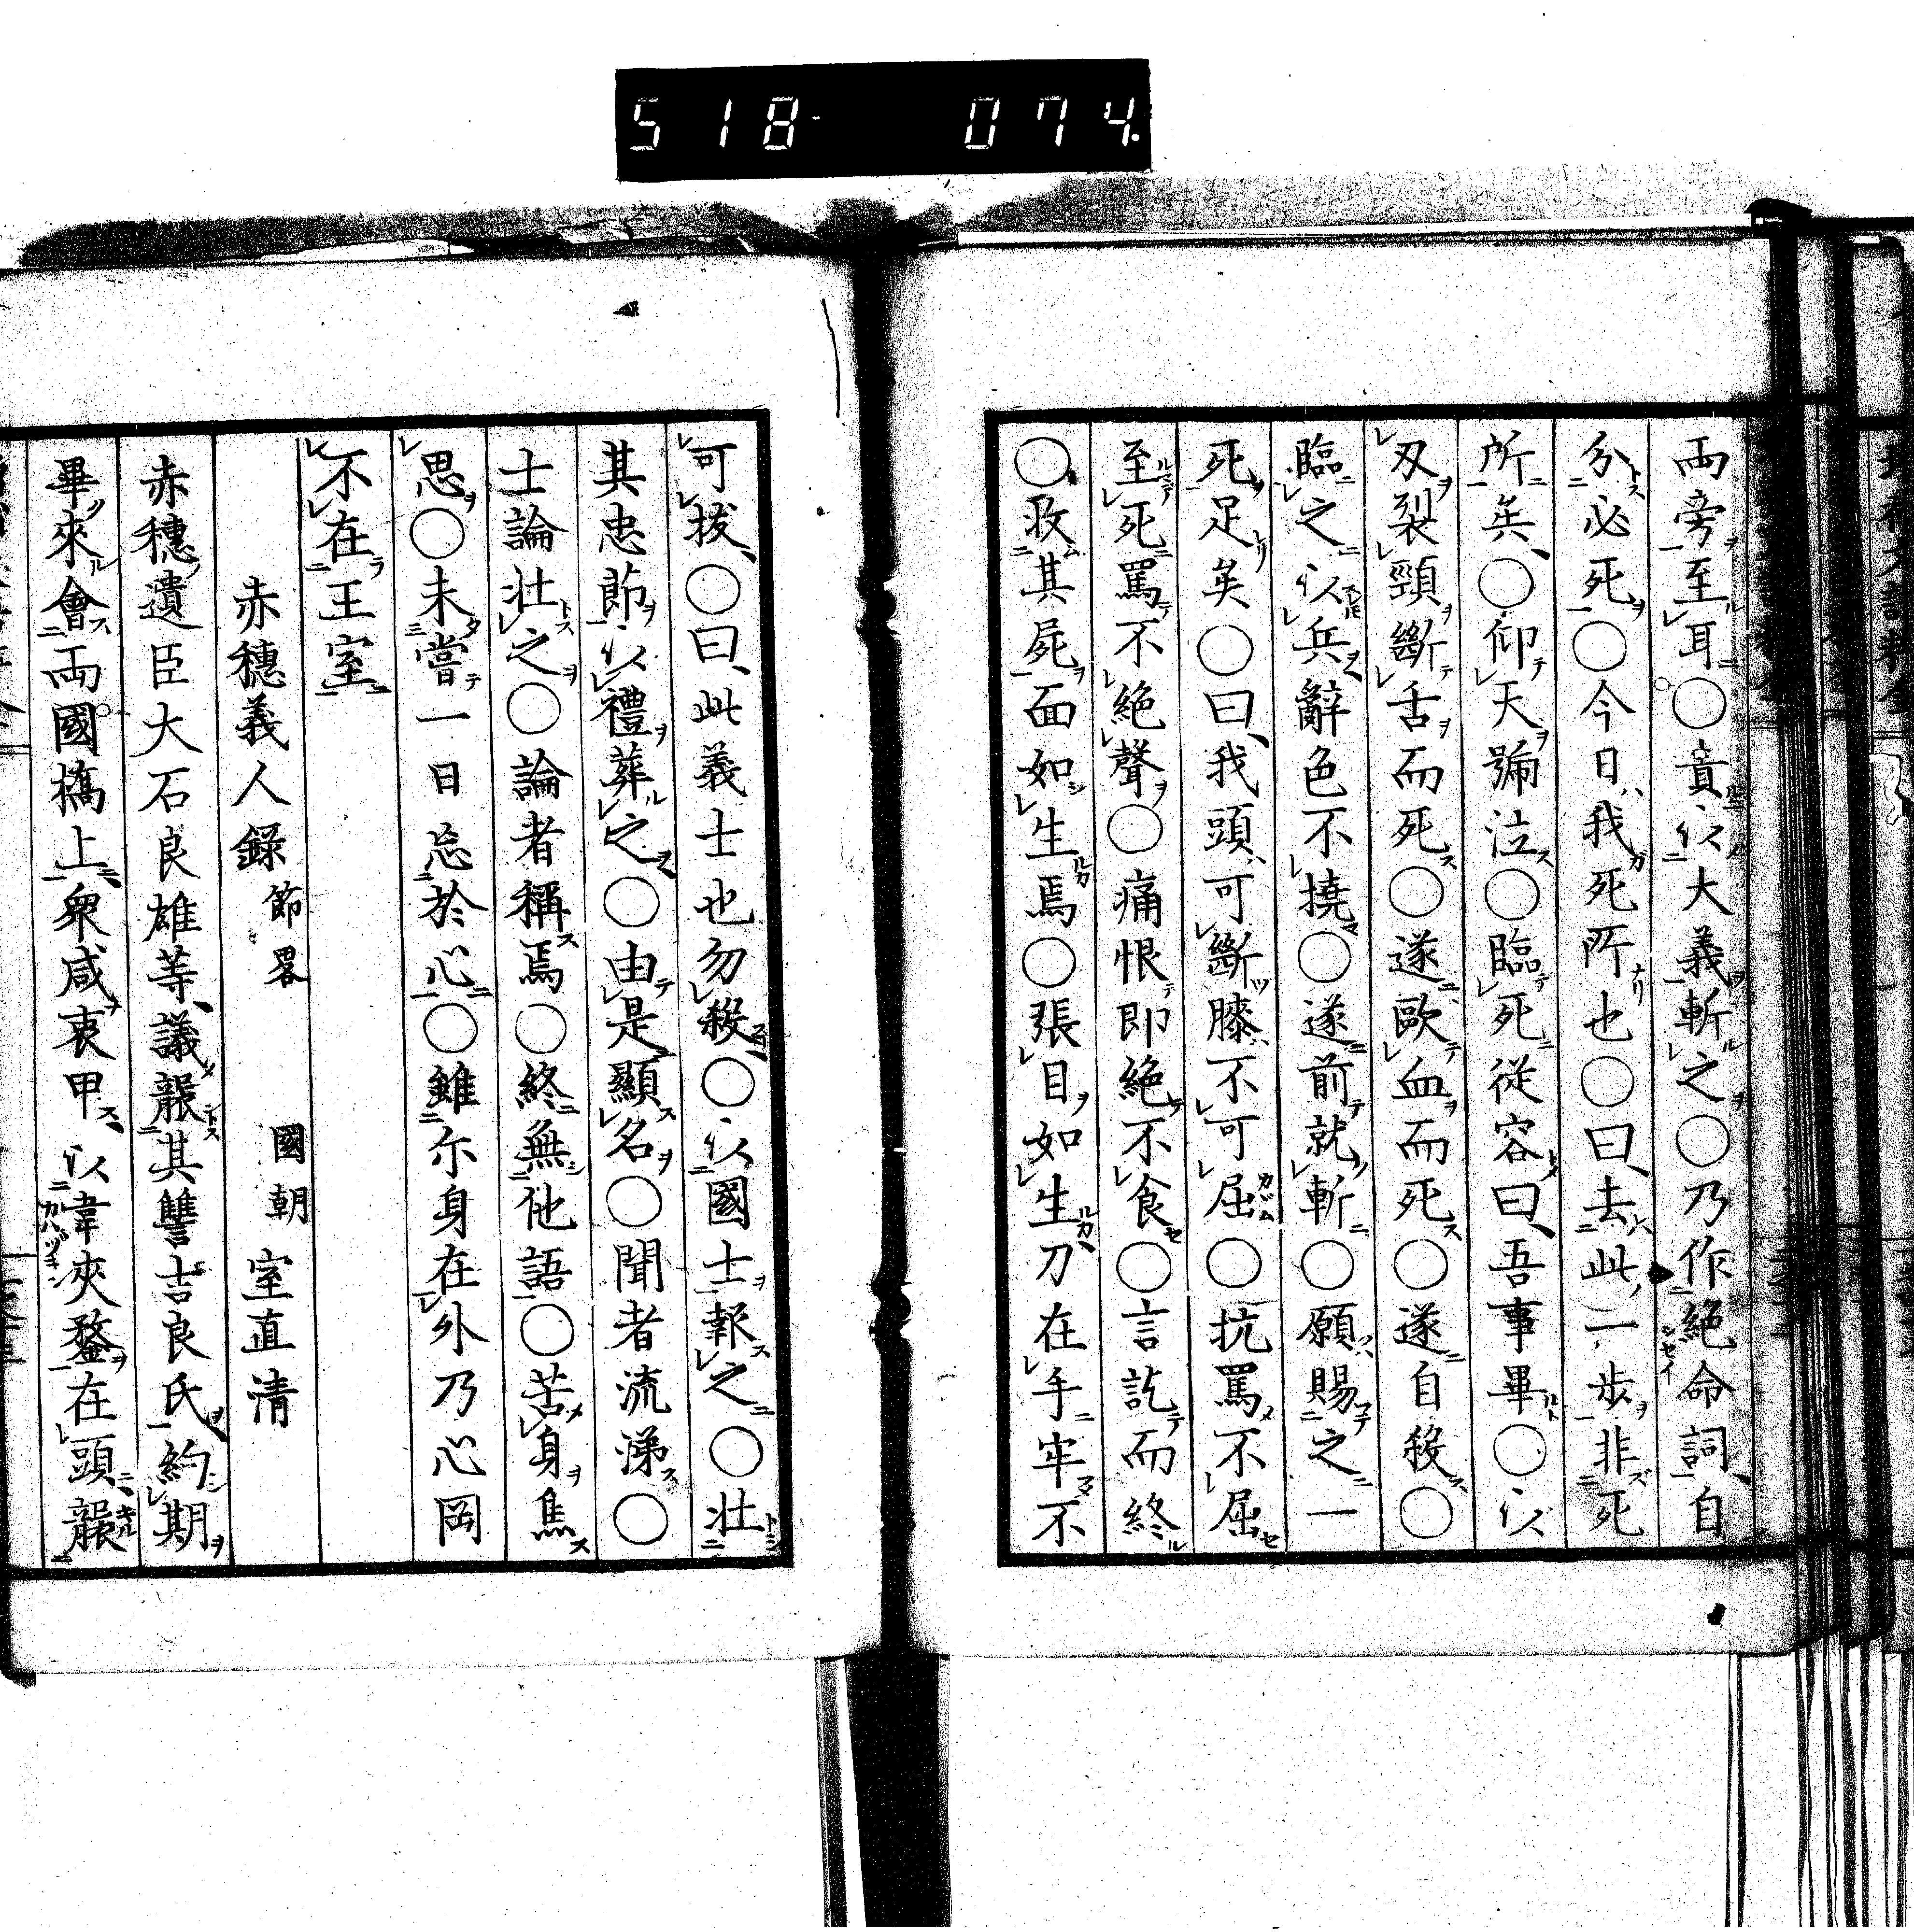 518 074
兩旁至耳○責以大義斬之○乃作絕命詞、自
分必死○今日、我死所也○曰、去此一歩非死
所矣、○仰天號泣○臨死從容曰、吾事畢○以
刄裂頸斷舌而死○遂歐血而死○遂自殺○
臨之以兵辭色不撓○遂前就斬○願賜之一
死足矣○曰、我頭可斷膝不可屈○抗罵不屈
至死罵不絕聲○痛恨即絕不食○言訖而終
○收其屍面如生焉○張目如生刀在手牢不
可拔、○曰、此義士也勿殺○以國士報之○壯
其忠節以禮葬之○由是顯名○聞者流涕○
士論壯之○論者稱焉○終無他語○苦身焦
思○未嘗一日忘於心○雖尓身在外乃心罔
不在王室
赤穗義人錄 節畧 國朝 室直清
赤穗遺臣大石良雄等、議報其讐吉良氏約期
畢來會兩國橋上衆咸衷甲以韋夾鍪在頭襲